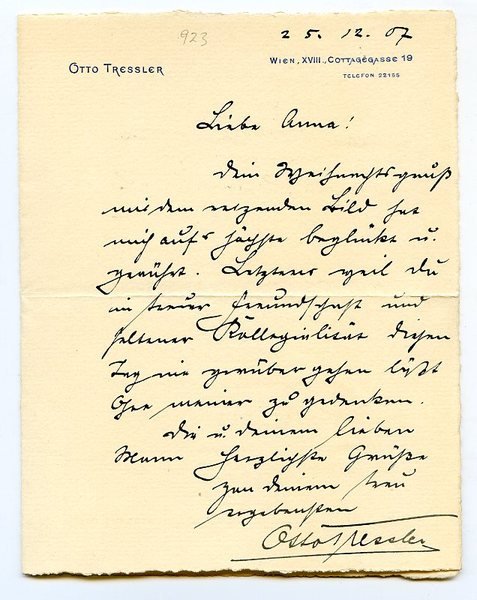 923
25. 12. 07
OTTO TRESSLER
WIEN, XVIII., COTTAGEGASSE 19
TELEFON 22155
Liebe Anna!
Dein Weihnachtsgruß
mit dem reizenden Bild hat
mich aufs höchste beglückt u.
gerührt. Letzteres weil Du
in treuer Freundschaft und
seltener Kollegialität diesen
Tag nie vorüber gehen läßt
ohne meiner zu gedenken.
Dir u. deinem lieben
Mann herzlichste Grüße
von deinem treu
ergebensten
Otto Tressler